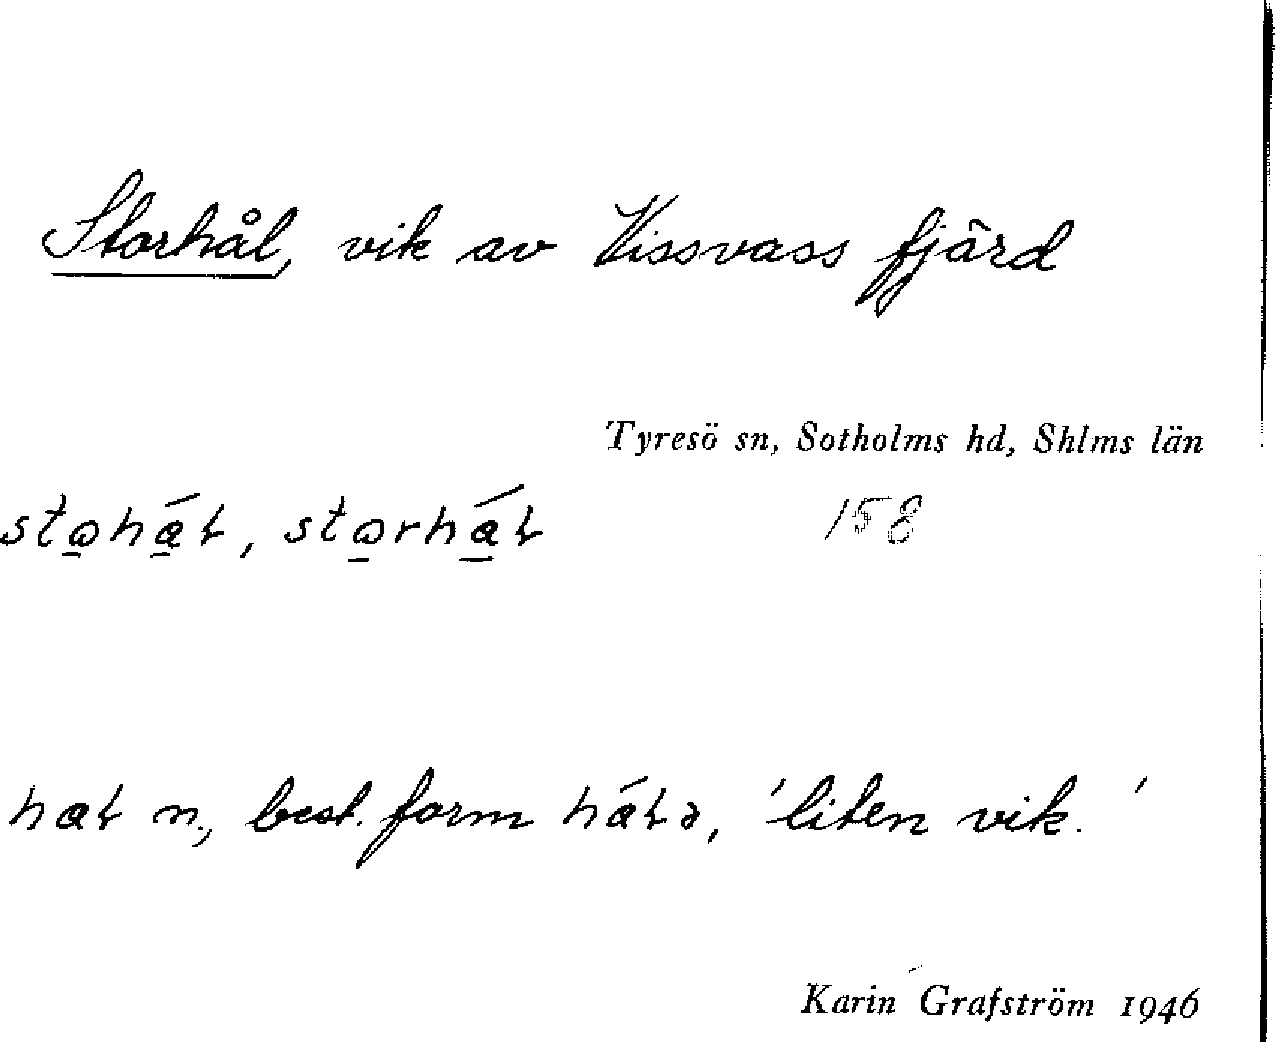 Storhål, vik av Vissvass fjärd
Tyresö sn, Sotholms hd, Shlms län
158
n., best. form 'liten vik.'
Karin Grafström 1946